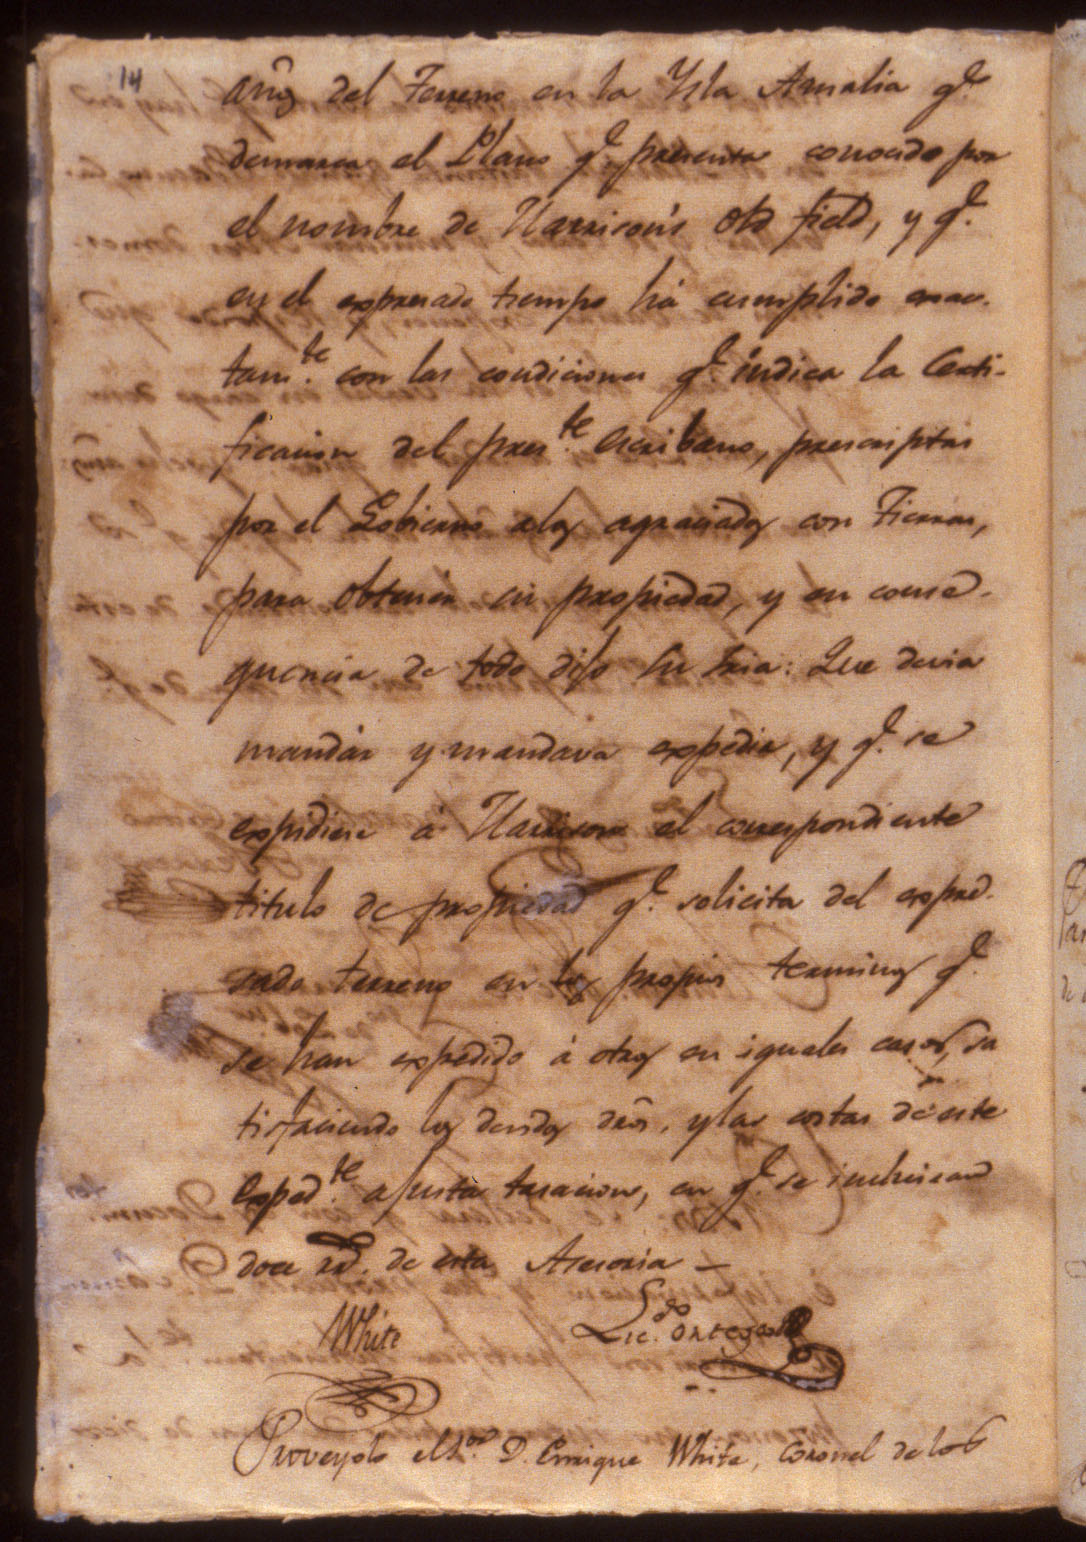 14
añs del Terreno en la Ysla Amalia q.e
demarca el Plano q.e presenta conocido por
el nombre de Harrison's Old field, y q.e
en el expresado tiempo há cumplido exac-
tam.te con las condiciones q.e indica la Certi-
ficacion del pres.te Escribano, prescriptas
por el Gobierno a los agraciados con Tierras,
para obtener su propiedad, y en conse-
quencia de todo dijo Su Sria: Que devia
mandár y mandava expedir, y q.e se
expidiese á Harrison el correspondiente
titulo de propiedad q.e solicita del expre-
sado terreno en los propios terminos q.e
se han expedido á otros en iguales casos, sa
tisfaciendo los devidos dros. y las costas de este
Exped.te a justa tasacion, en q.e se incluiran
doce rs. de esta Asesoria —
White
Lic.do Ortega
Proveyolo el S.or D. Enrique White, Coronel de los